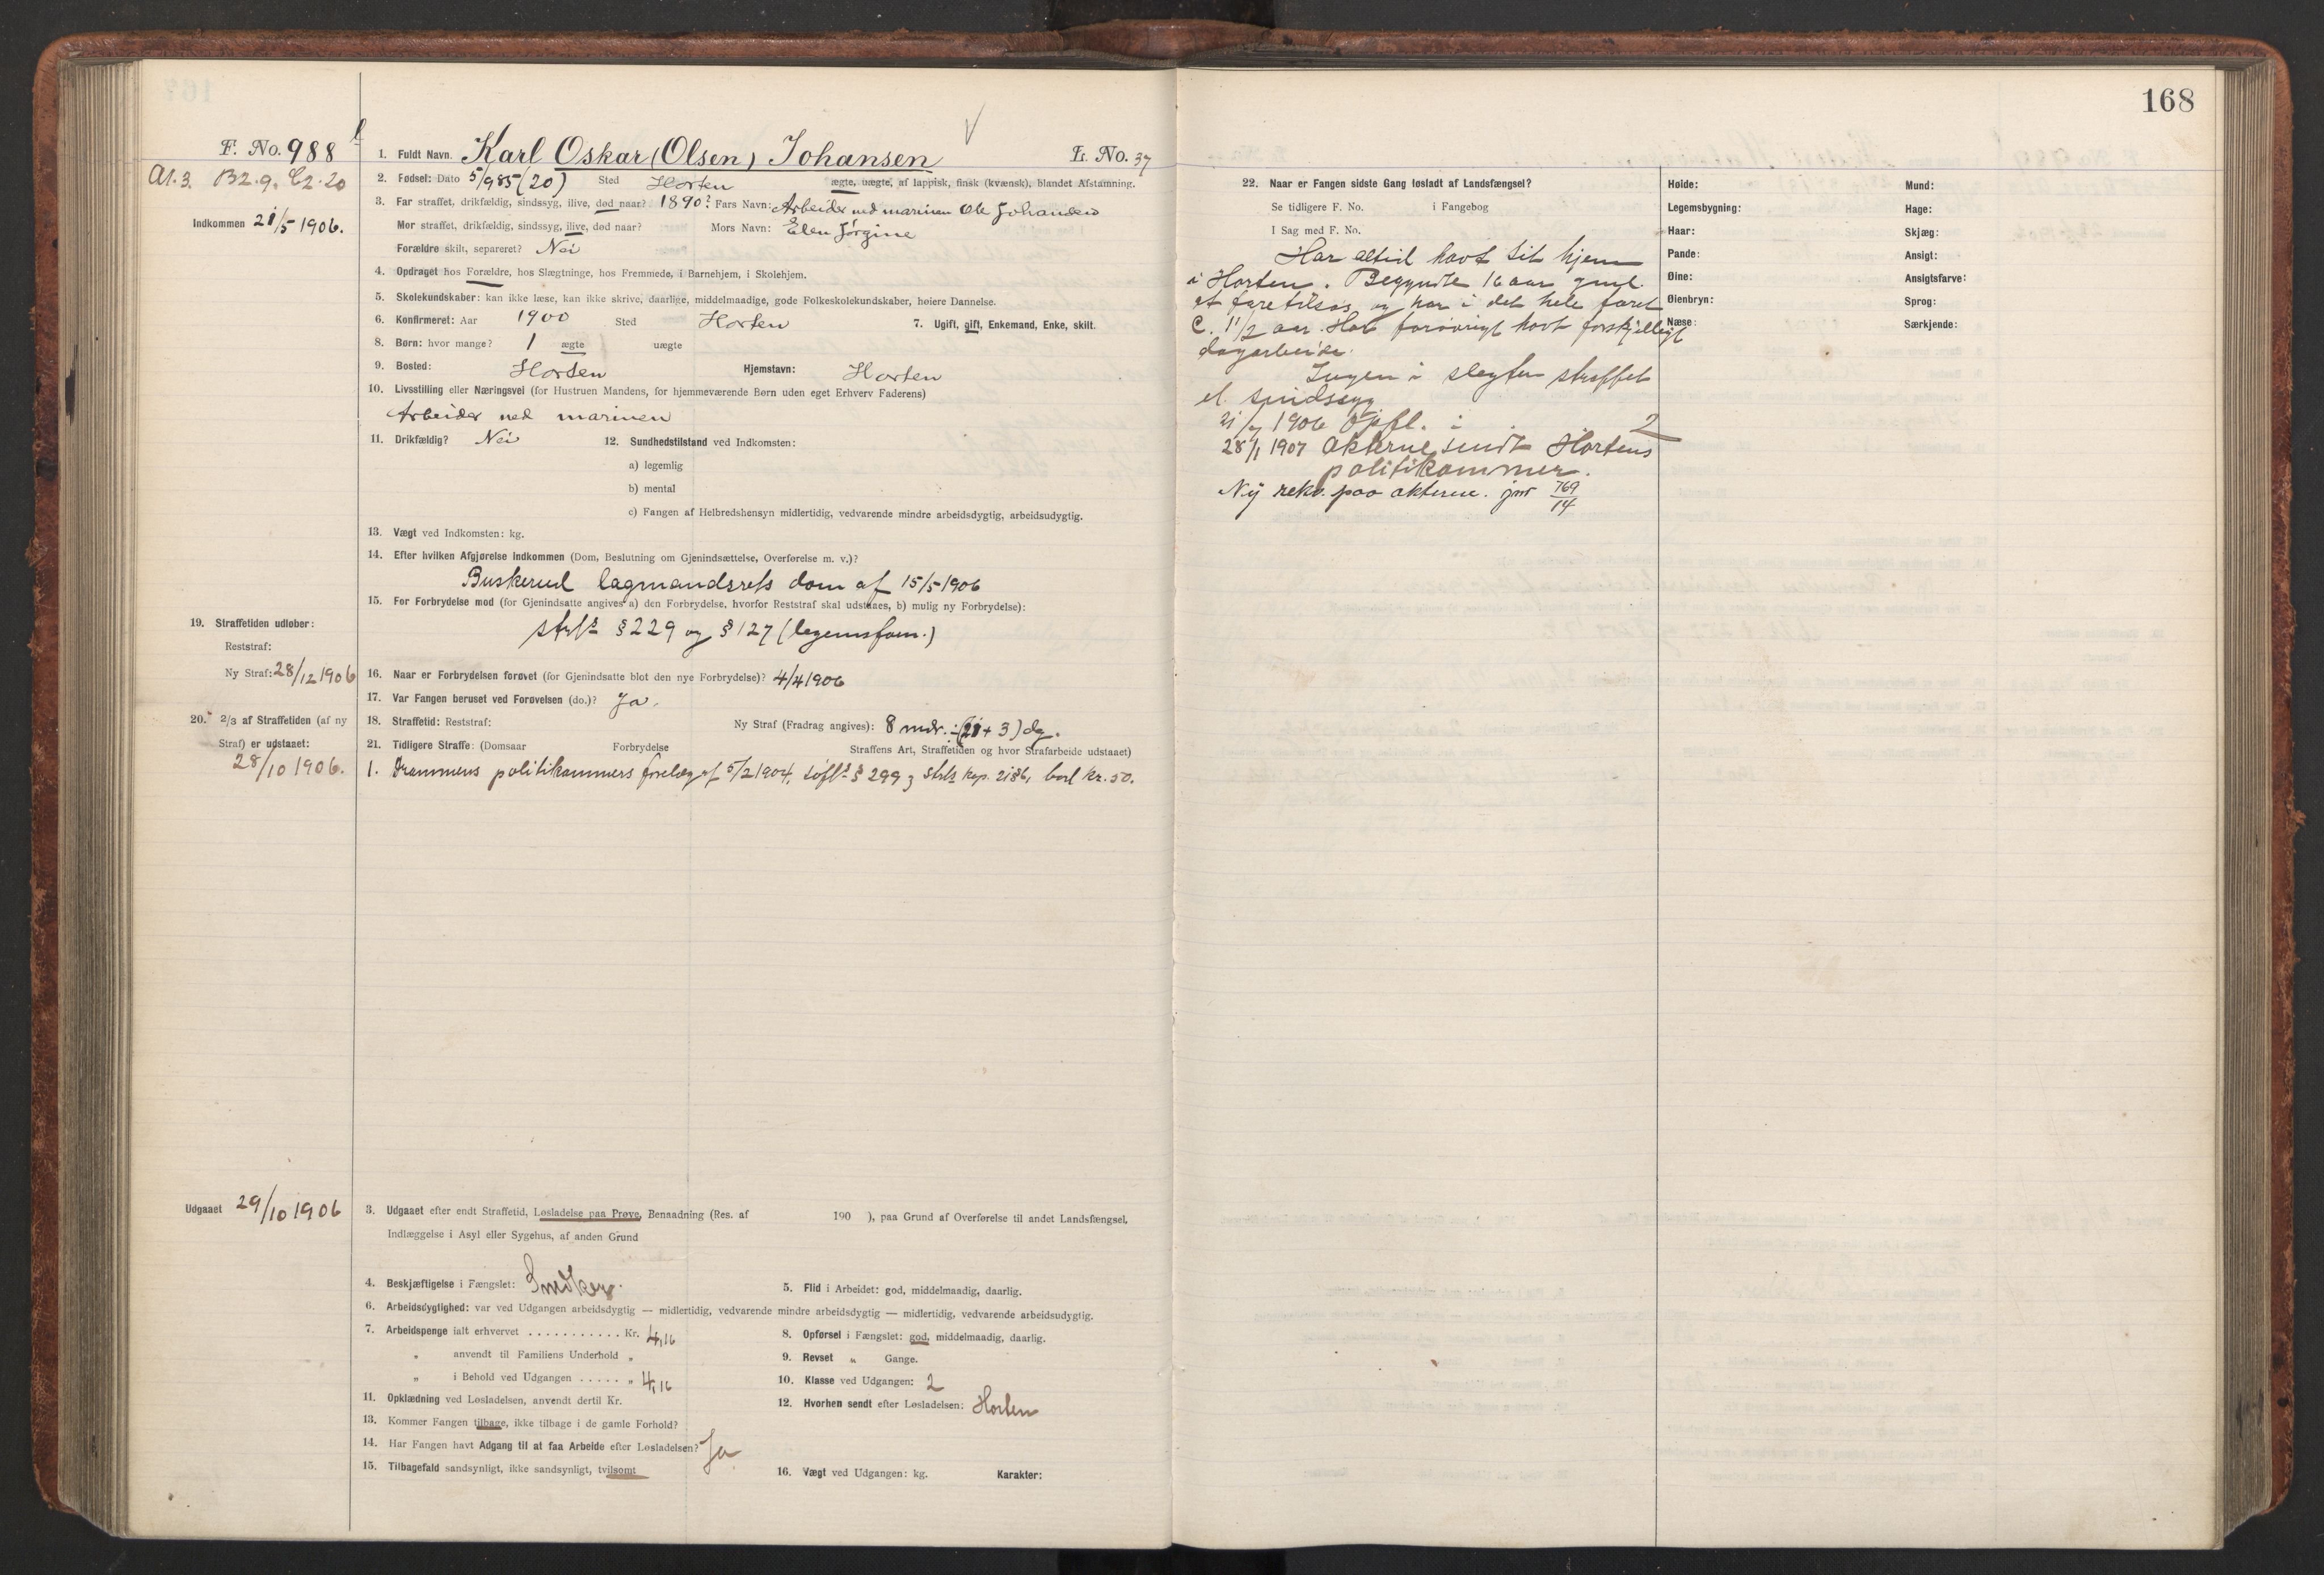 168
F. No. 988
1. Fuldt Navn. Karl Oskar (Olsen) Johansen L. No. 37
A1.3. B2.9. C2.20
2. Fødsel: Dato 5/9 85 (20) Sted Horten ægte, uægte, af lappisk, finsk (kvænsk), blandet Afstamning.
3. Far straffet, drikfældig, sindssyg, ilive, død naar? 1890? Fars Navn: Arbeider ved marinen Ole Johansen
Indkommen 21/5 1906.
Mor straffet, drikfældig, sindssyg, ilive, død naar? Mors Navn: Elen Jørgine
Forældre skilt, separeret? Nei
4. Opdraget hos Forældre, hos Slægtninge, hos Fremmede, i Barnehjem, i Skolehjem.
5. Skolekundskaber: kan ikke læse, kan ikke skrive, daarlige, middelmaadige, gode Folkeskolekundskaber, høiere Dannelse.
6. Konfirmeret: Aar 1900 Sted Horten 7. Ugift, gift, Enkemand, Enke, skilt.
8. Børn: hvor mange? 1 ægte uægte
9. Bosted: Horten Hjemstavn: Horten
10. Livsstilling eller Næringsvei (for Hustruen Mandens, for hjemmeværende Børn uden eget Erhverv Faderens)
Arbeider ved marinen
11. Drikfældig? Nei 12. Sundhedstilstand ved Indkomsten:
a) legemlig
b) mental
c) Fangen af Helbredshensyn midlertidig, vedvarende mindre arbeidsdygtig, arbeidsudygtig.
13. Vægt ved Indkomsten: kg.
14. Efter hvilken Afgjørelse Indkommen (Dom, Beslutning om Gjenindsættelse, Overførelse m. v.)?
Buskerud lagmandsrets dom af 15/5 1906
15. For Forbrydelse mod (for Gjenindsatte angives a) den Forbrydelse, hvorfor Reststraf skal udstaaes, b) mulig ny Forbrydelse):
strl§ § 229 og § 127 (legemsforn.)
19. Straffetiden udløber:
Reststraf:
Ny Straf: 28/12 1906
16. Naar er Forbrydelsen forøvet (for Gjenindsatte blot den nye Forbrydelse)? 4/4 1906
17. Var Fangen beruset ved Forøvelsen (do.)? Ja.
20. 2/3 af Straffetiden (af ny
Straf) er udstaaet:
28/10 1906.
18. Straffetid: Reststraf: Ny Straf (Fradrag angives): 8 mdr. ÷ (21 + 3) dg.
21. Tidligere Straffe: (Domsaar Forbrydelse Straffens Art, Straffetiden og hvor Strafarbeide udstaaet)
1. Drammens politikammers forelæg af 5/2 1904, § 299 strl§ kap. kr. 50.
Udgaaet 29/10 1906
3. Udgaaet efter endt Straffetid, Løsladelse paa Prøve, Benaadning (Res. af 190 ), paa Grund af Overførelse til andet Landsfængsel,
Indlæggelse i Asyl eller Sygehus, af anden Grund
4. Beskjæftigelse i Fængslet: Snedker. 5. Flid i Arbeidet: god, middelmaadig, daarlig.
6. Arbeidsdygtighed: var ved Udgangen arbeidsdygtig — midlertidig, vedvarende mindre arbeidsdygtig — midlertidig, vedvarende arbeidsudygtig.
7. Arbeidspenge ialt erhvervet . . . . . . . . . . . Kr. 4,16 8. Opførsel i Fængslet: god, middelmaadig, daarlig.
„ anvendt til Familiens Underhold „ 9. Revset „ Gange.
„ i Behold ved Udgangen . . . . . „ 4,16 10. Klasse ved Udgangen: 2
11. Opklædning ved Løsladelsen, anvendt dertil Kr. 12. Hvorhen sendt efter Løsladelsen: Horten
13. Kommer Fangen tilbage, ikke tilbage i de gamle Forhold?
14. Har Fangen havt Adgang til at faa Arbeide efter Løsladelsen? Ja
15. Tilbagefald sandsynligt, ikke sandsynligt, tvilsomt 16. Vægt ved Udgangen: kg. Karakter:
22. Naar er Fangen sidste Gang løsladt af Landsfængsel?
Se tidligere F. No. i Fangebog
I Sag med F. No.
Har altid havt sit hjem
i Horten. Begyndte 16 aar gml.
at fare tilsøs og har i det hele faret
c. 1 1/2 aar. Har forøvrigt havt forskjelligt
dagarbeide.
Ingen i slegten straffet
el. sindssyg
21/7 1906 Opfl. i 2
28/1 1907 akterne sendt Hortens
politikammer.
Ny rekv. paa akterne. jnr 769/14
Høide: Mund:
Legemsbygning: Hage:
Haar: Skjæg:
Pande: Ansigt:
Øine: Ansigtsfarve:
Øienbryn: Sprog:
Næse: Særkjende: